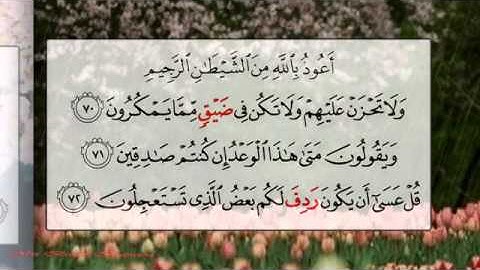 أَعُوذُ بِٱللَّهِ مِنَ ٱلشَّيْطَٰنِ ٱلرَّجِيمِ
وَلَا تَحْزَنْ عَلَيْهِمْ وَلَا تَكُن فِى ضَيْقٍ مِّمَّا يَمْكُرُونَ ٧٠
وَيَقُولُونَ مَتَىٰ هَٰذَا ٱلْوَعْدُ إِن كُنتُمْ صَٰدِقِينَ ٧١
قُلْ عَسَىٰٓ أَن يَكُونَ رَدِفَ لَكُم بَعْضُ ٱلَّذِى تَسْتَعْجِلُونَ ٧٢